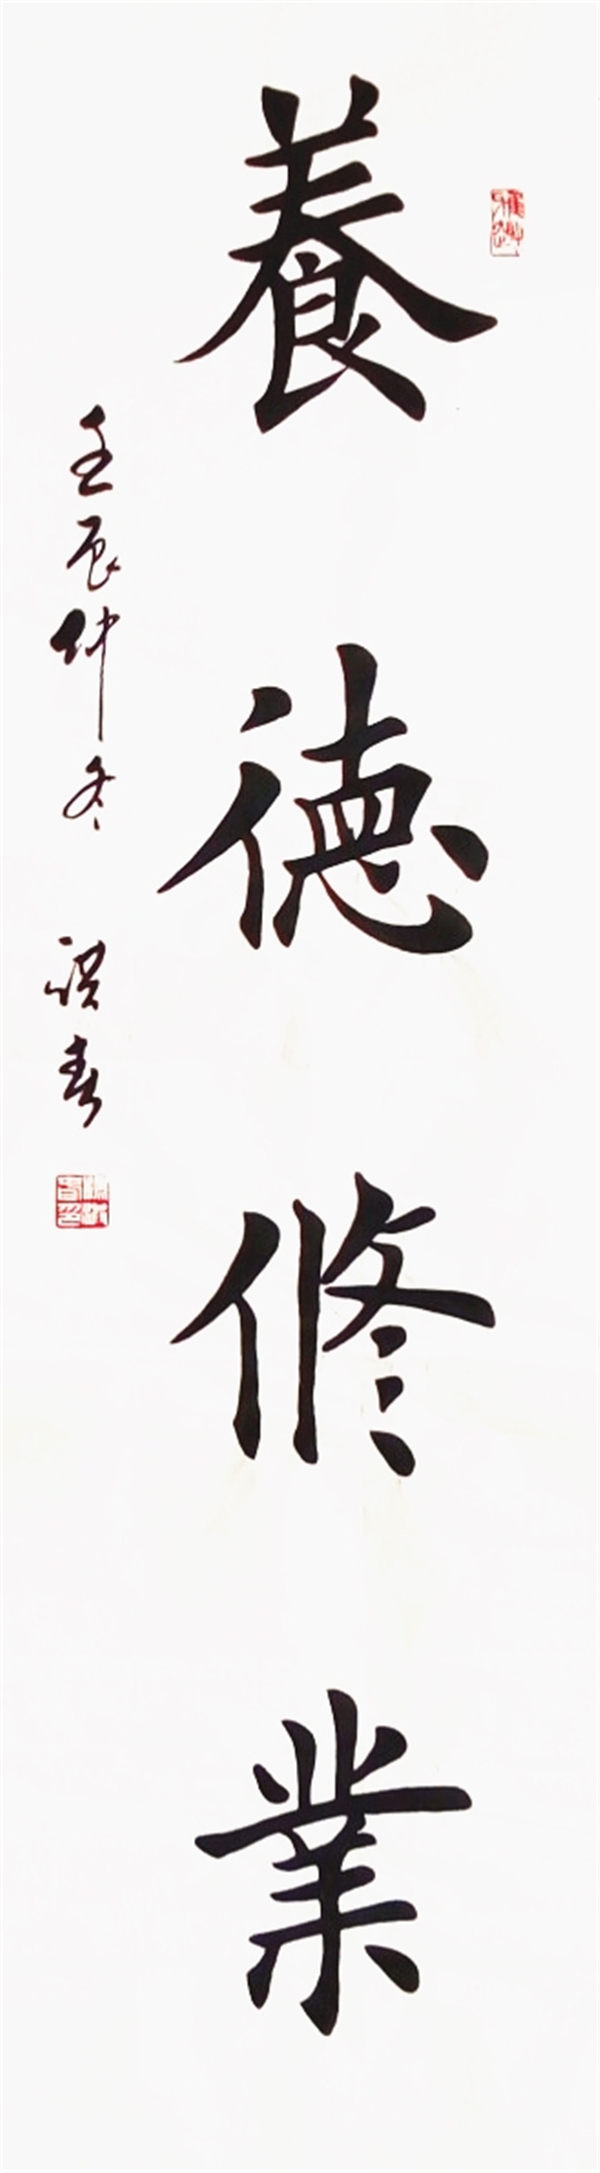 養德修業
壬辰仲冬 洪春